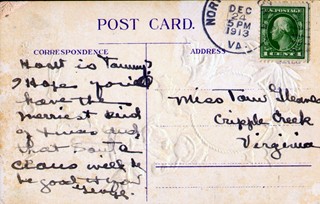 POST CARD.
CORRESPONDENCE
ADDRESS
NOR
DEC
24
5 PM
1913
VA.
U.S. POSTAGE
1 CENT 1
is
I Hope you'll
have the
merriest kind
of Xmas and
that Santa
Claus will
be good to you
George.
Miss Tam
Cripple Creek
Virginia